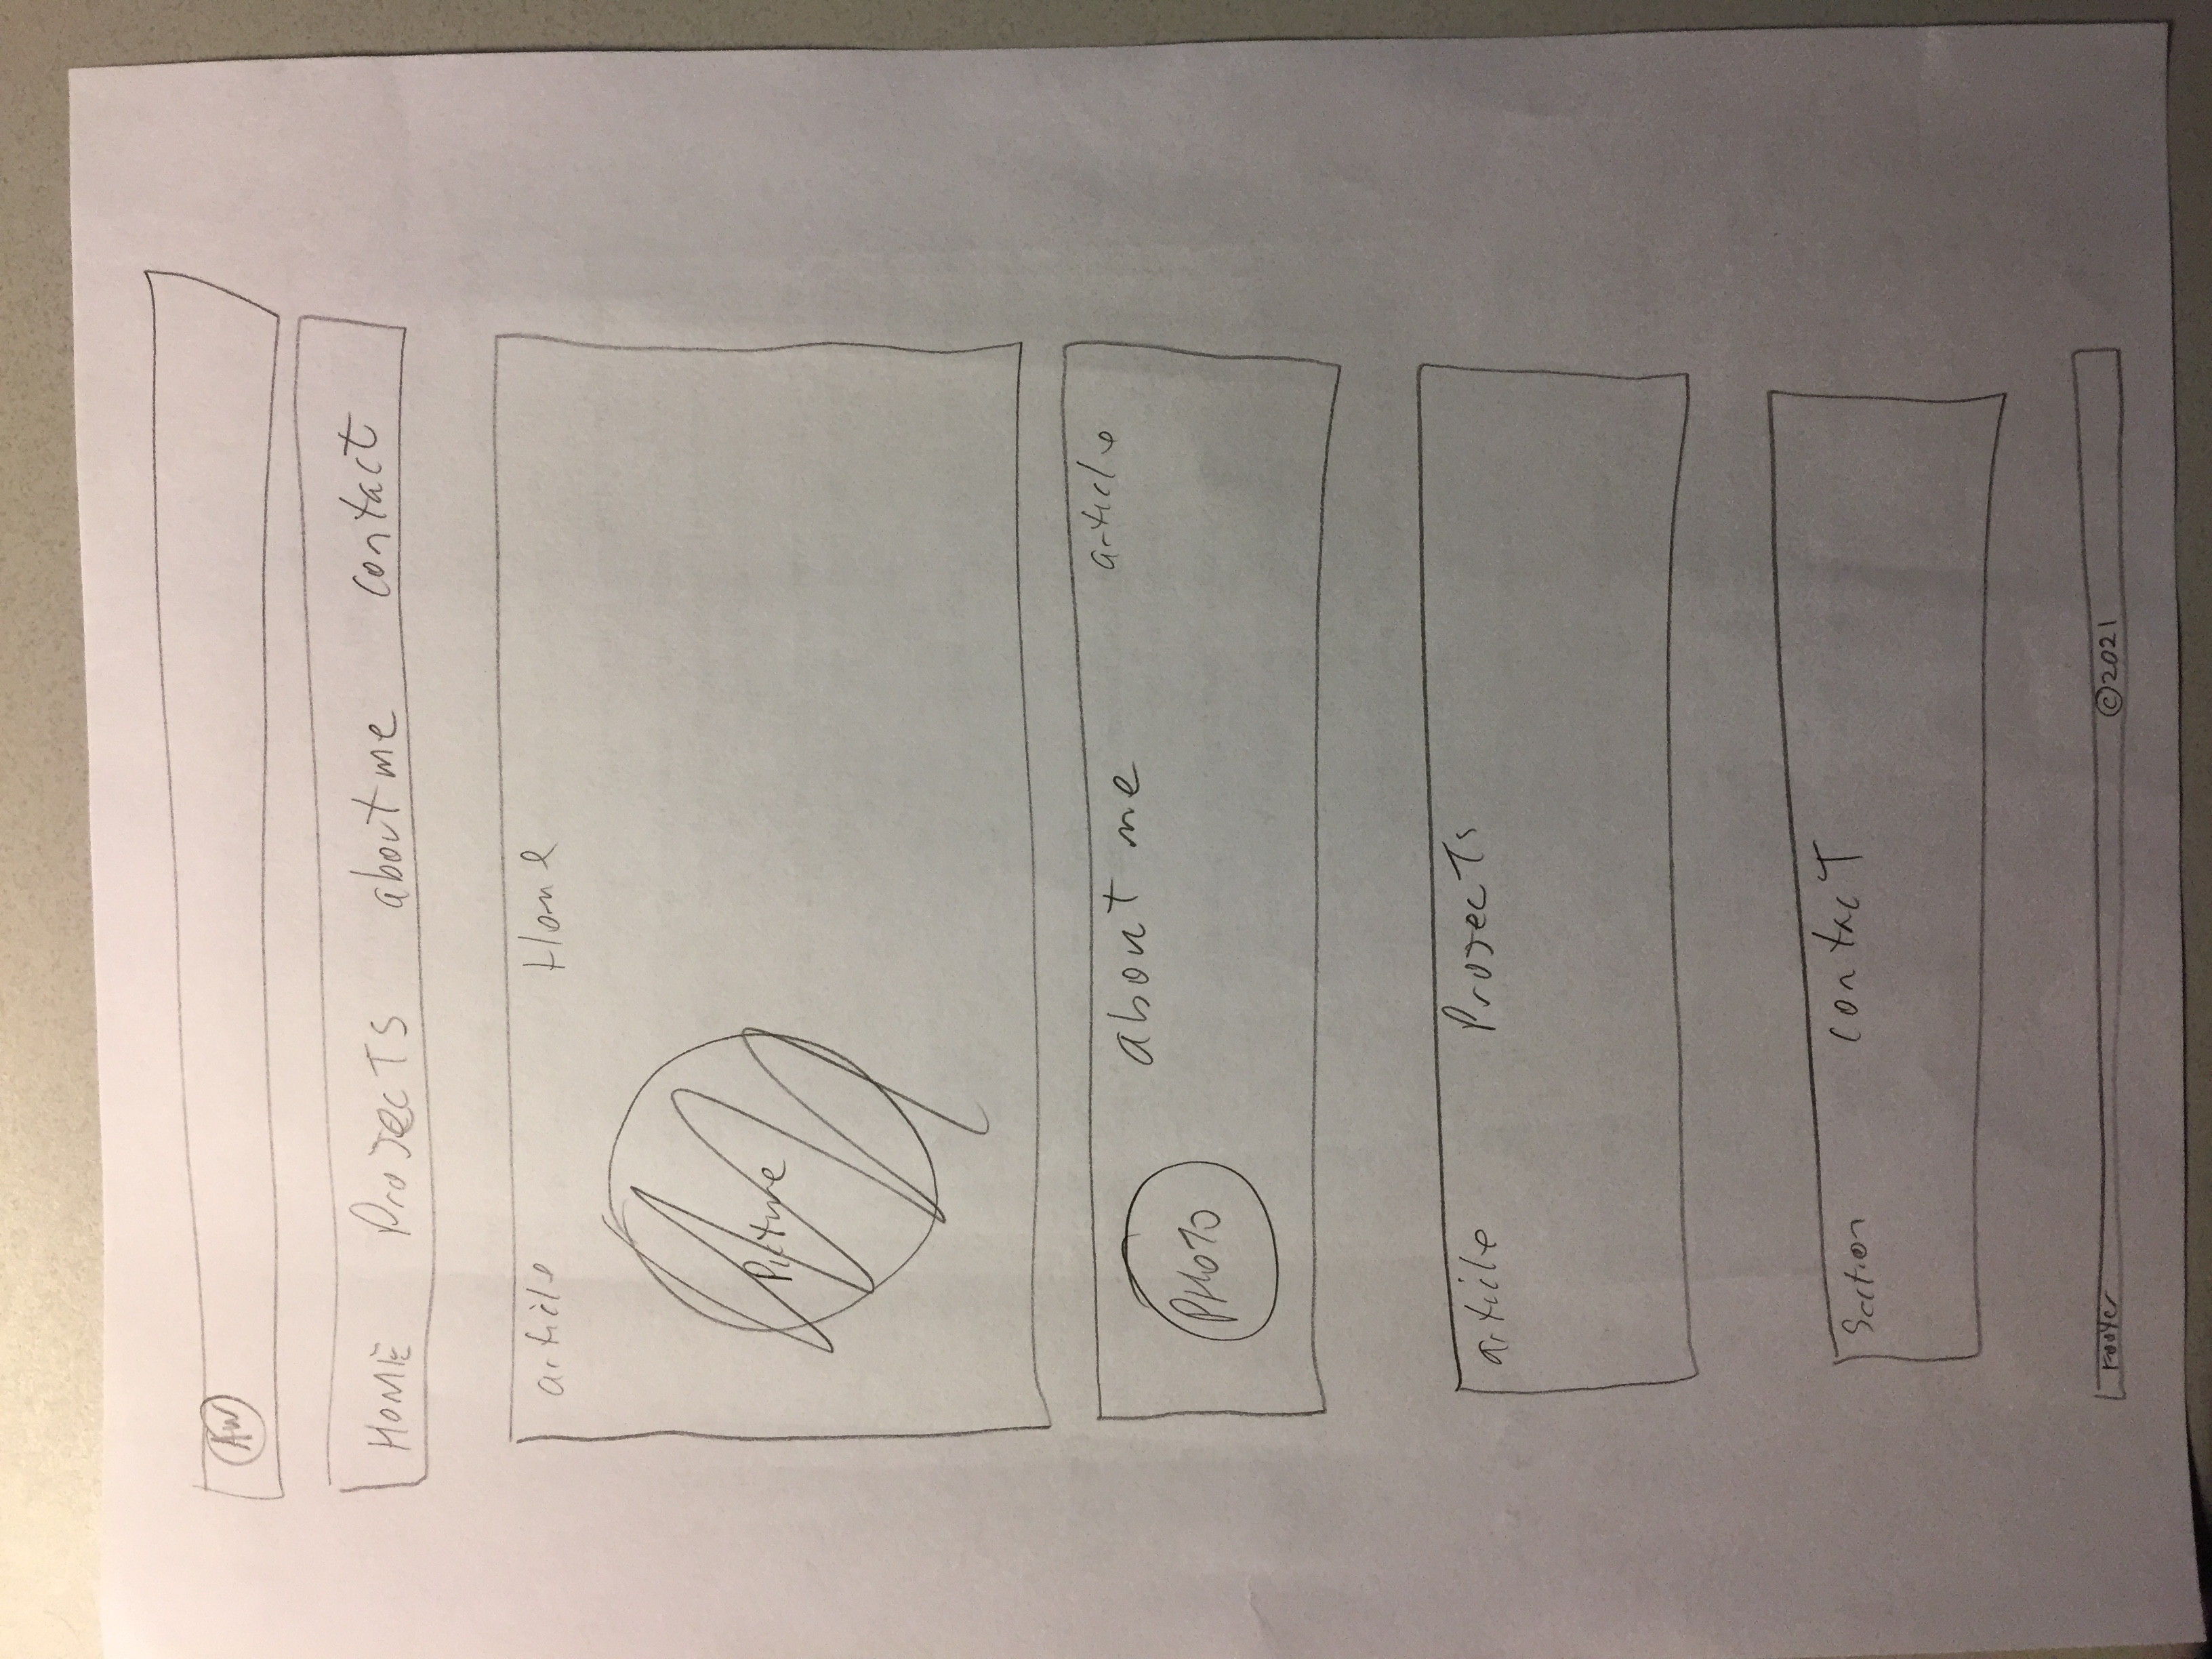 AW
HOME Projects about me contact
article Home
Picture
about me article
PHOTO
article Projects
Section contact
Footer ©2021